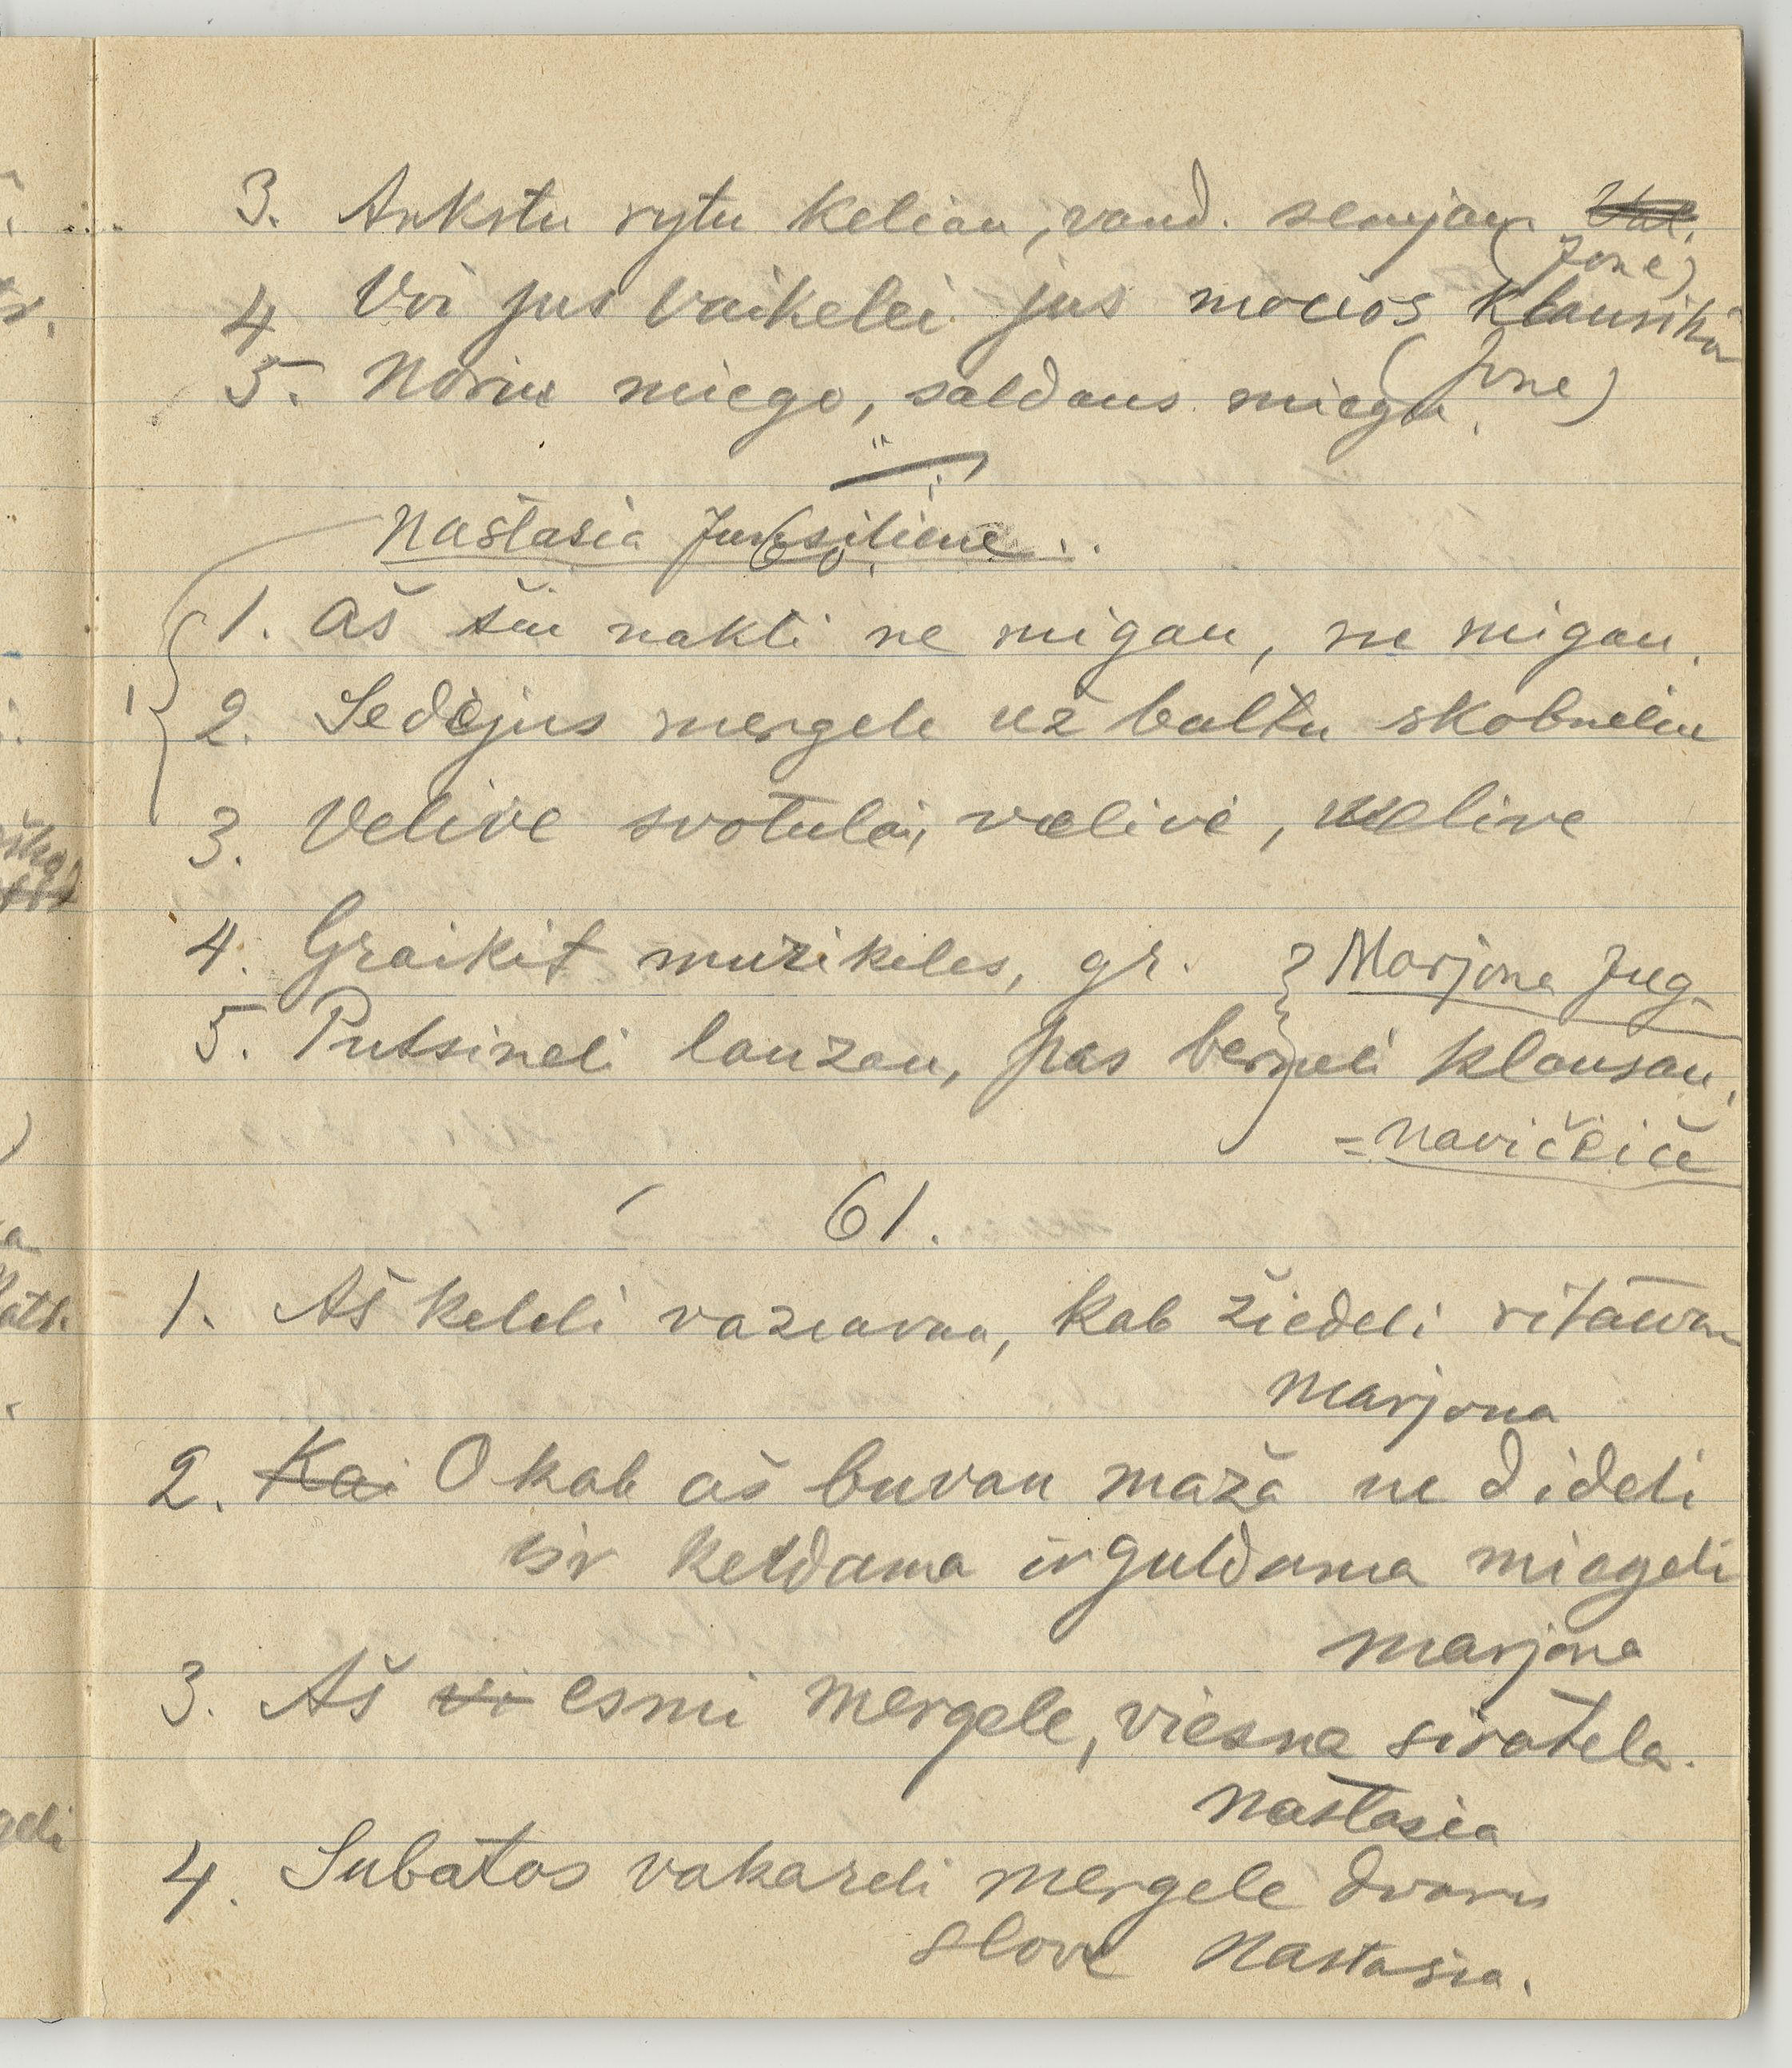 3. Ankstu rytu kelian, vand. semjau.
(Jone)
4 Voi jus vaikelei jus mocios klausiki
5. Noriu miego, saldaus miegu. (Jone)
Nastasia
60.
1. Aš šiu nakti ne migau, ne migau.
2. Sedėjus mergele už baltu skobneliu
3. Velive svotulei, velive, velive
4. Graikit muzikeles, gr. } Marjona Jug-
5. Putsineli lauzau, pas berneli klausau.
=naviččiče
61.
1. Aš keleli vazeavau, kab žiedeli ritawau
Marjona
2. Kai O kab aš buvau mažā ne dideli
ir keldama ir guldama miegeli
Marjona
3. Aš vi esmi mergele, viesna siratela.
Nastasia
4. Subatos vakareli mergele dvaru
slove Nastasia.